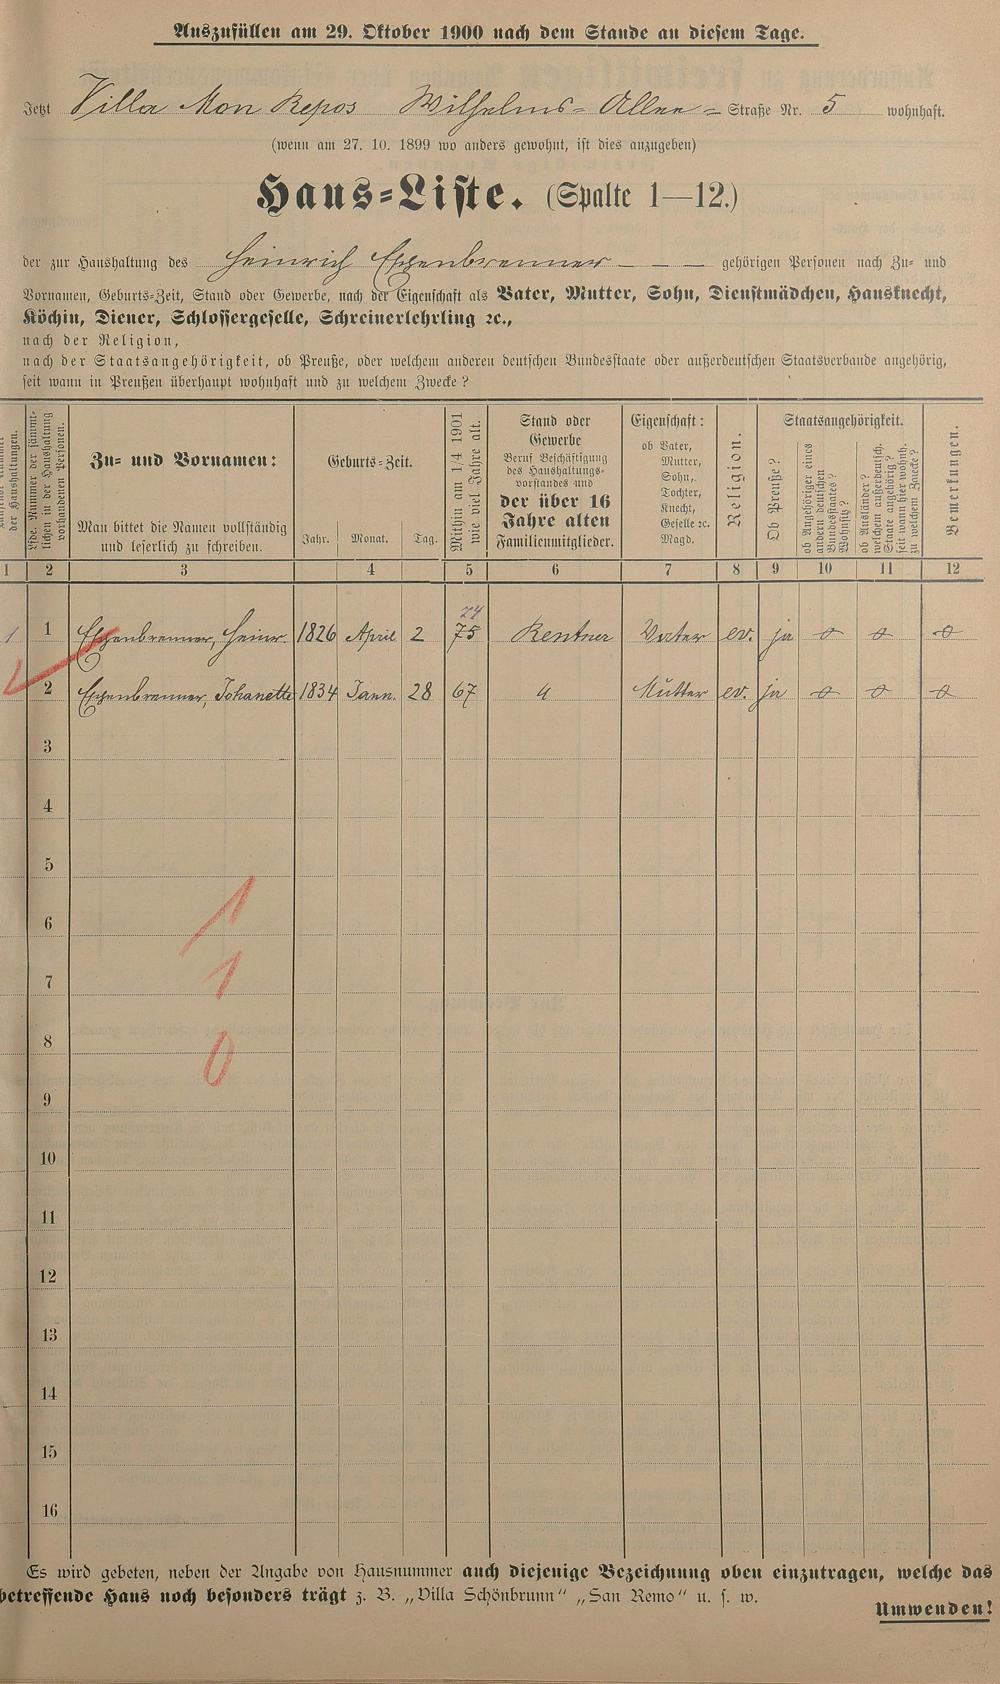 Auszufüllen am 29. Oktober 1900 nach dem Stande an diesem Tage.
Jetzt Villa Mon Repos Wilhelms-Allee-Straße Nr. 5 wohnhaft.
(wenn am 27. 10. 1899 wo anders gewohnt, ist dies anzugeben)
Haus-Liste. (Spalte 1—12.)
der zur Haushaltung des Heinrich — — — gehörigen Personen nach Zu- und
Vornamen, Geburts-Zeit, Stand oder Gewerbe, nach der Eigenschaft als Vater, Mutter, Sohn, Dienstmädchen, Hausknecht,
Köchin, Diener, Schlossergeselle, Schreinerlehrling ꝛc.,
nach der Religion,
nach der Staatsangehörigkeit, ob Preuße, oder welchem anderen deutschen Bundesstaate oder außerdeutschen Staatsverbande angehörig,
seit wann in Preußen überhaupt wohnhaft und zu welchem Zwecke?
der Haushaltungen.
Lfde. Nummer der sämmt-
lichen in der Haushaltung
vorhandenen Personen.
Zu- und Vornamen:
Man bittet die Namen vollständig
und leserlich zu schreiben.
Geburts-Zeit.
Jahr. Monat. Tag.
Mithin am 1/4 1901
wie viel Jahre alt.
Stand oder
Gewerbe
Beruf Beschäftigung
des Haushaltungs-
vorstandes und
der über 16
Jahre alten
Familienmitglieder.
Eigenschaft:
ob Vater,
Mutter,
Sohn,
Tochter,
Knecht,
Geselle ꝛc.
Magd.
Religion.
Staatsangehörigkeit.
Ob Preuße?
ob Angehöriger eines
andern deutschen
Bundesstaates?
Wohnsitz?
ob Ausländer?
welchem außerdeutsch.
Staate angehörig?
seit wann hier wohnh.
zu welchem Zwecke?
Bemerkungen.
1 2 3 4 5 6 7 8 9 10 11 12
74
1 1 Heinr. 1826 April 2 75 Rentner Vater ev. ja o o o
2 Johanette 1834 Jann. 28 67 " Mutter ev. ja o o o
3
4
5
6 1
7 1
8 0
9
10
11
12
13
14
15
16
Es wird gebeten, neben der Angabe von Hausnummer auch diejenige Bezeichnung oben einzutragen, welche das
betreffende Haus noch besonders trägt z. B. „Villa Schönbrunn“ „San Remo“ u. s. w.
Umwenden!